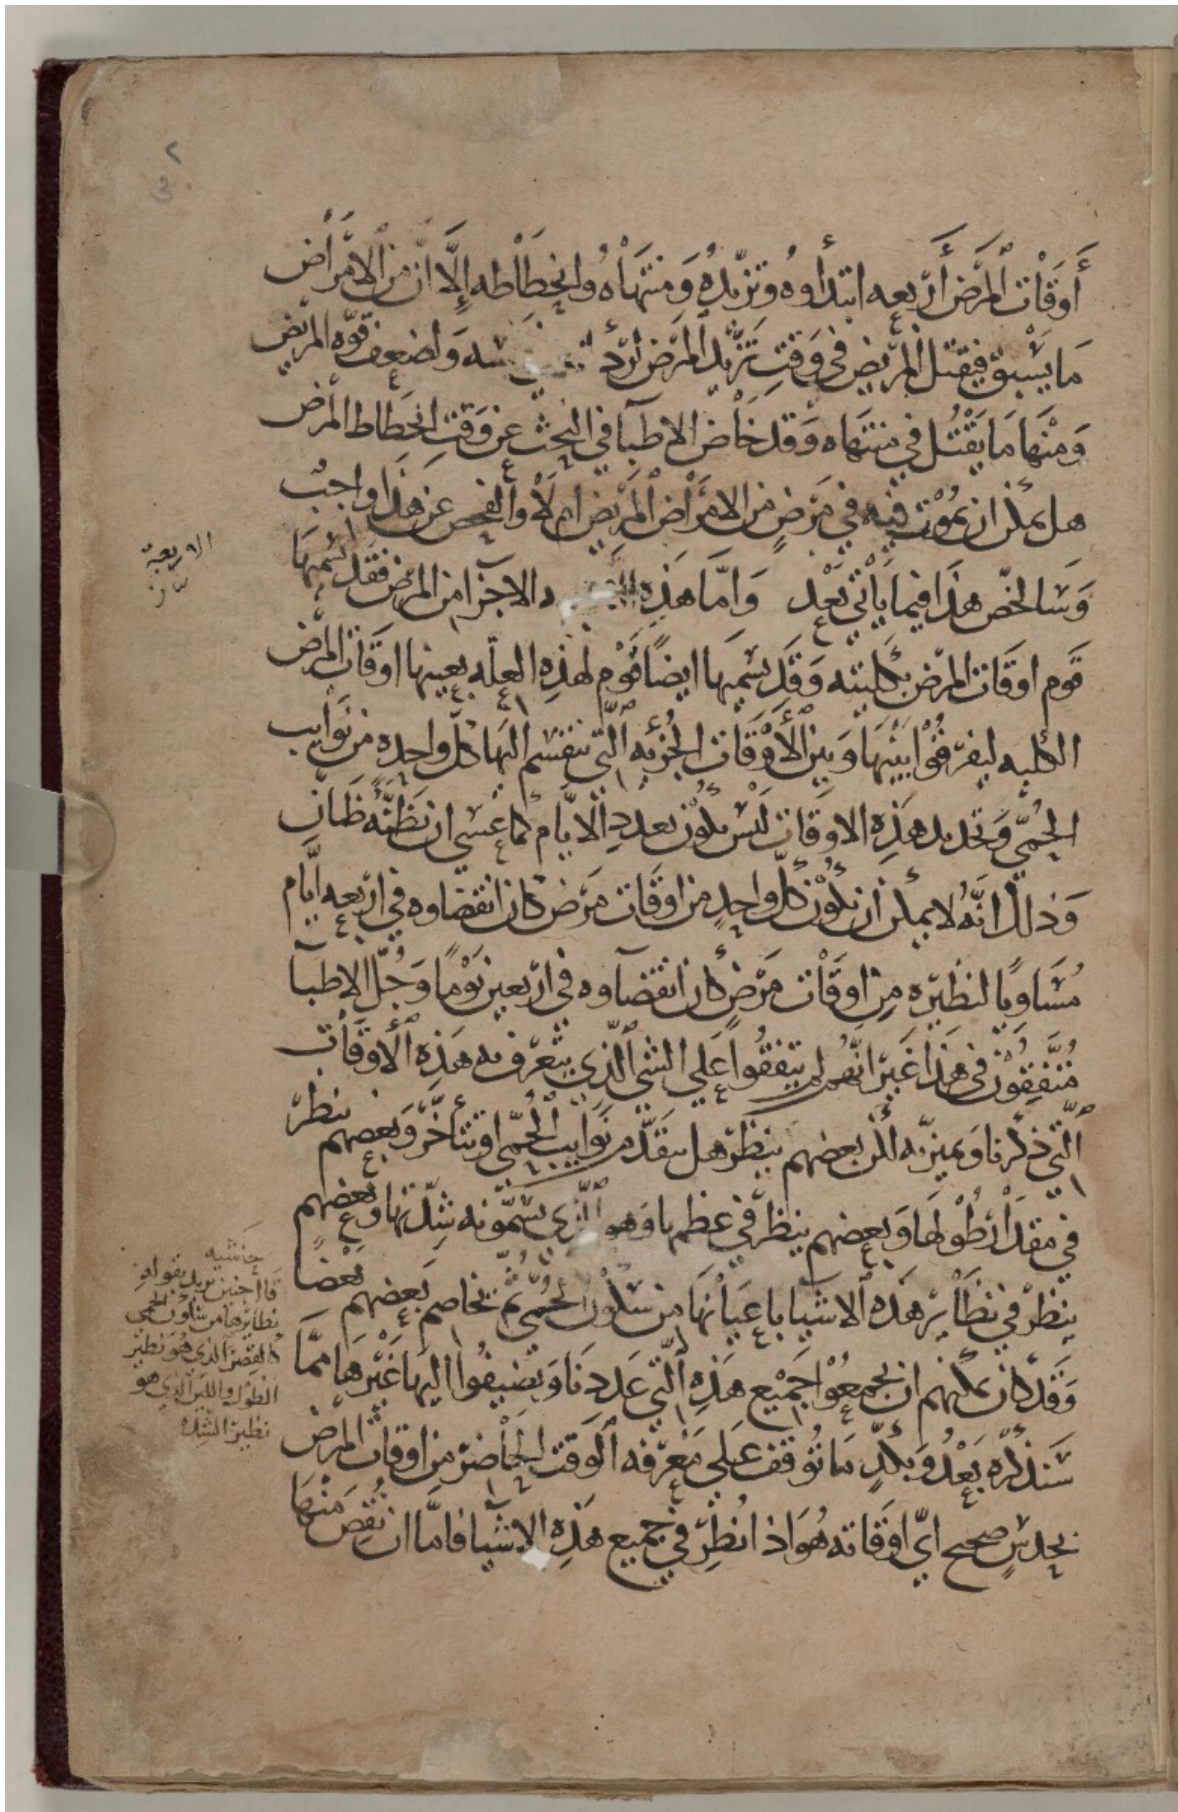 ٢
أَوقَات المَرَض أَربعه ابتدأُوهُ وتزيّدُه وَمنتهَاهُ وانحِطَاطه إلَّا انّ من الامرَاض
مَا يَسْبق فيقتل المَريض في وَقتِ تَزيّد المرَض لردأة وَلضعف قوّه المريض
وَمْنهَا مَا يَقْتُل في منتهَاه وَقد خَاض الاطبآ في البحث عن وَقتِ انحِطاط المرَض
هل يمكن ان يمُوت فيه في مَرَضٍ من الامرَاض المَريض ام لَا والفحص عن هَذا واجبٌ
وَسَالخّص هذَا فيما يَأتي بَعْد وَامّا هَذِه الاجزآ من المرَض فقَد يسميهَا
الاربعة
قَوم اوقَات المرَض بكليته وَقَد يسميهَا ايضًا قَوْم لهَذِه العلّه بعينها اوقَات المرَض
الكليه ليفرّقُوْا بَيْنهَا وَبين الأَوْقَات الجُزئيه الّتي تنقسَم اليهَا كلّ واحِده من نَوَايب
الحُمّي وَتحديد هَذِه الاوقَات لَيْس يكُوْن بعددِ الايَّام كَما عَسي ان يَظنَّهُ ظَانّ
وَذلك انّهُ لا يمكن ان يكُوْن كلّ واحِدٍ من اوقَات مَرَض كان انقضاوه في اربعه ايَّام
مُسَاويًا لنظيرَه مِن اوقَات مَرَضٍ كان انقضآوه في اربعين يَوْمًا وَجُلّ الاطبآ
مُتَّفِقُوْن في هَذَا غَير انّهُم لم يتفقُوا عَلي الشي الّذِي يتعرّف به هَذِه الأوقَات
الّتي ذكرنا وَيميز به لكن بعضهم ينظرُ هل يتَقدّم نَوَايب الحُمّي او تتأخّر وَبَعضهم ينظر
في مقدَار طُوْلهَا وَبعضهم ينظرُ في عظمها وَهو الّذِي يسَمّونه شِدّتها وبَعضهم
ينظر في نظَآير هَذه الاشيَا باعيَانهَا من سكُون الحُمّي ثمّ تخاصم بَعضهم بَعْضا
وَقَد كان يمكنهم ان يجمعُوْا جَمِيْع هَذِه الّتي عَددنَا وَيضيفُوا اليهَا غَيرهَا ممّا
سَنذكره بَعْدُ وَبكدٍّ مَا تُوقف عَلي مَعْرفه الوَقت الحاضر من اوقات المرَض
بحدسٍ صَحيح ايّ اوقَاته هُوَ اذا نُظِر في جميع هَذِه الاشيَا فامَّا ان نُقِصَ منْهَا
حَاشيه
قال حنين يريد بقوله
نظايرها من سكون الحمي
القِصَر الذي هو نظير
الطول واللين الذي هو
نظير الشده